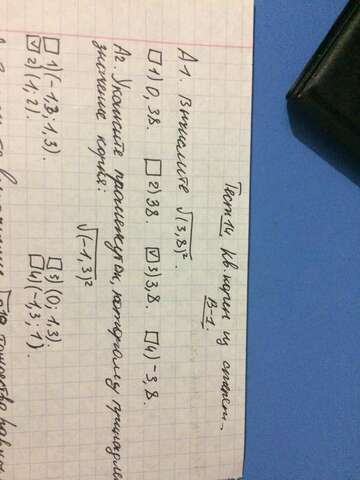 Тест 14 Кв. корни из степен.
В-1.
А1. Вычислите √(3,8)².
☐ 1) 0,38. ☐ 2) 38. ☑ 3) 3,8. ☐ 4) -3,8.
А2. Укажите промежуток, которому принадле
значение корня: √(-1,3)²
☐ 1) (-1,3; 1,3). ☐ 3) (0; 1,3).
☑ 2) (1, 2). ☐ 4) (-1,3; 1).